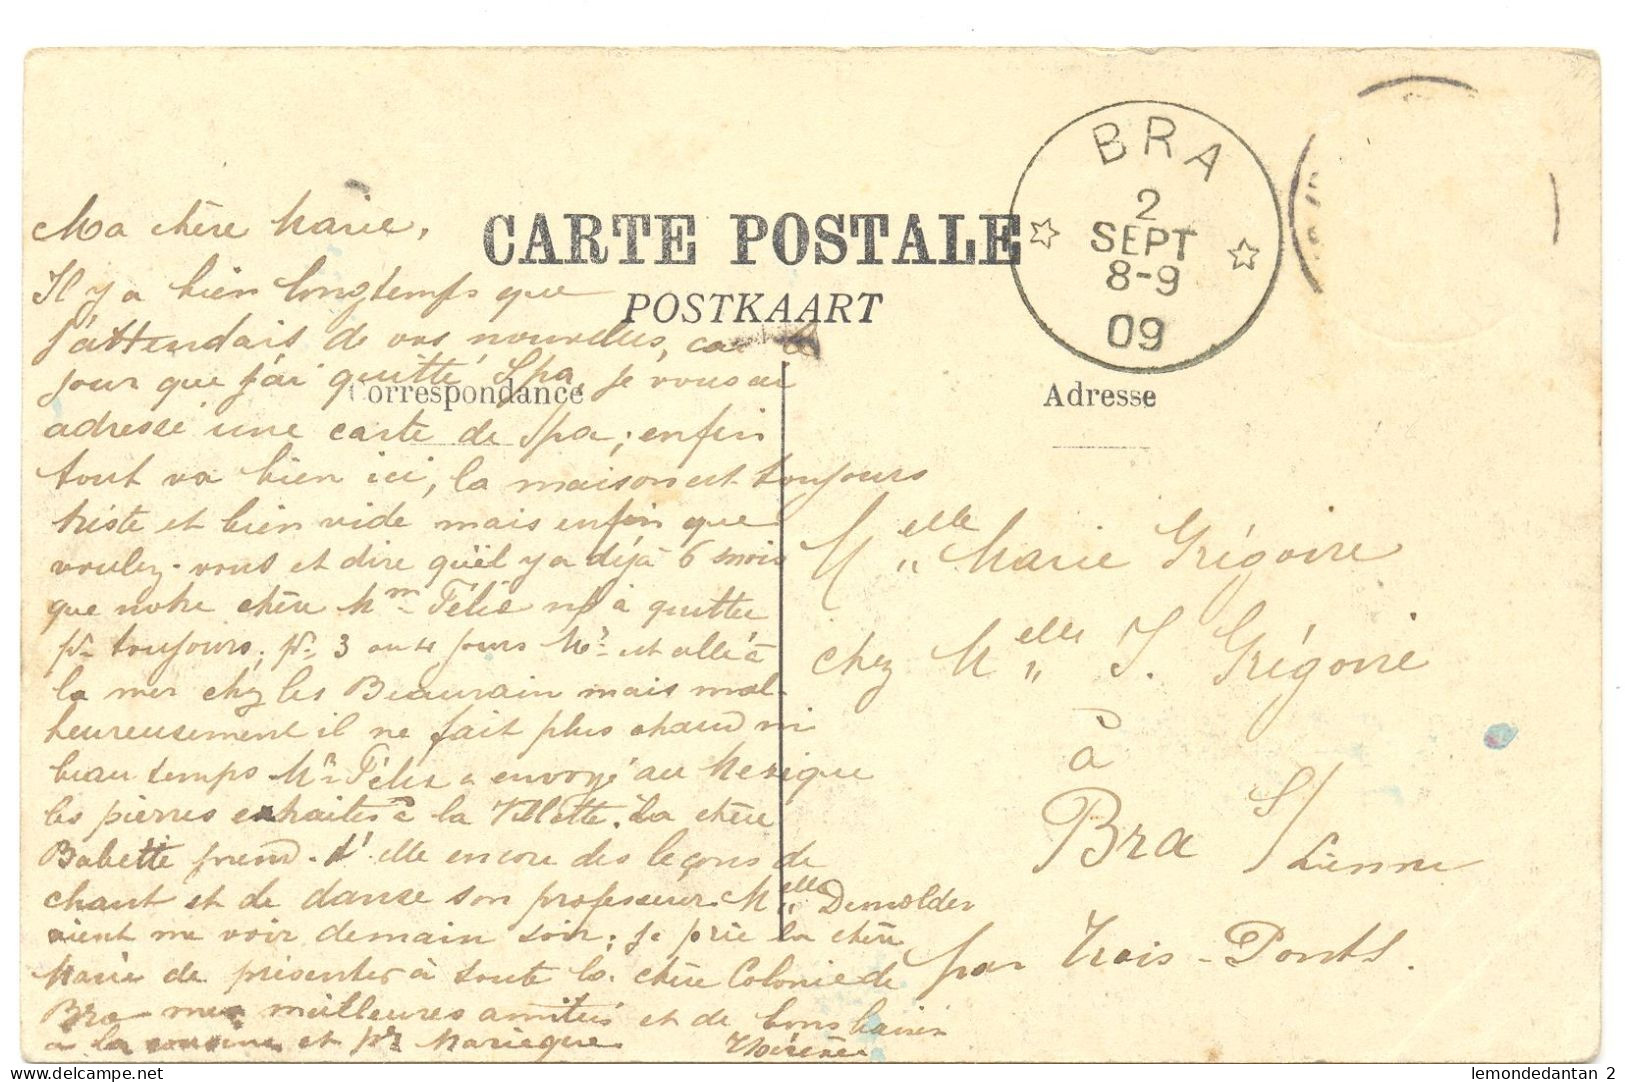 CARTE POSTALE
POSTKAART
Correspondance
Adresse
BRA
2
SEPT
8-9
09
Ma chère Marie,
Il y a bien longtemps que
j'attendais de vos nouvelles, car
jour que j'ai quitté Spa, je vous ai
adressé une carte de Spa; enfin
tout va bien ici, la maison est toujours
triste et bien vide mais enfin que
voulez-vous et dire qu'il y a déjà 6 mois
que notre chère Mme Félix ns a quittée
pr toujours; pr 3 ou 4 jours Mr est allé à
la mer chez les Beaurain mais mal-
heureusement il ne fait plus chaud ni
beau temps Mr Félix a envoyé au Mexique
les pierres extraites à la Villette. La chère
Babette prend-t'elle encore des leçons de
chant et de danse son professeur Melle Demolder
vient me voir demain soir; je prie la chère
Marie de présenter à toute la chère Colonie de
Bra mes meilleures amitiés et de bons baisers
à la cousine et pr Marieque
Melle Marie Grégoire
chez Melles J. Grégoire
à
Bra S/ Lienne
par Trois-Ponts.
lemondedantan 2
www.delcampe.net